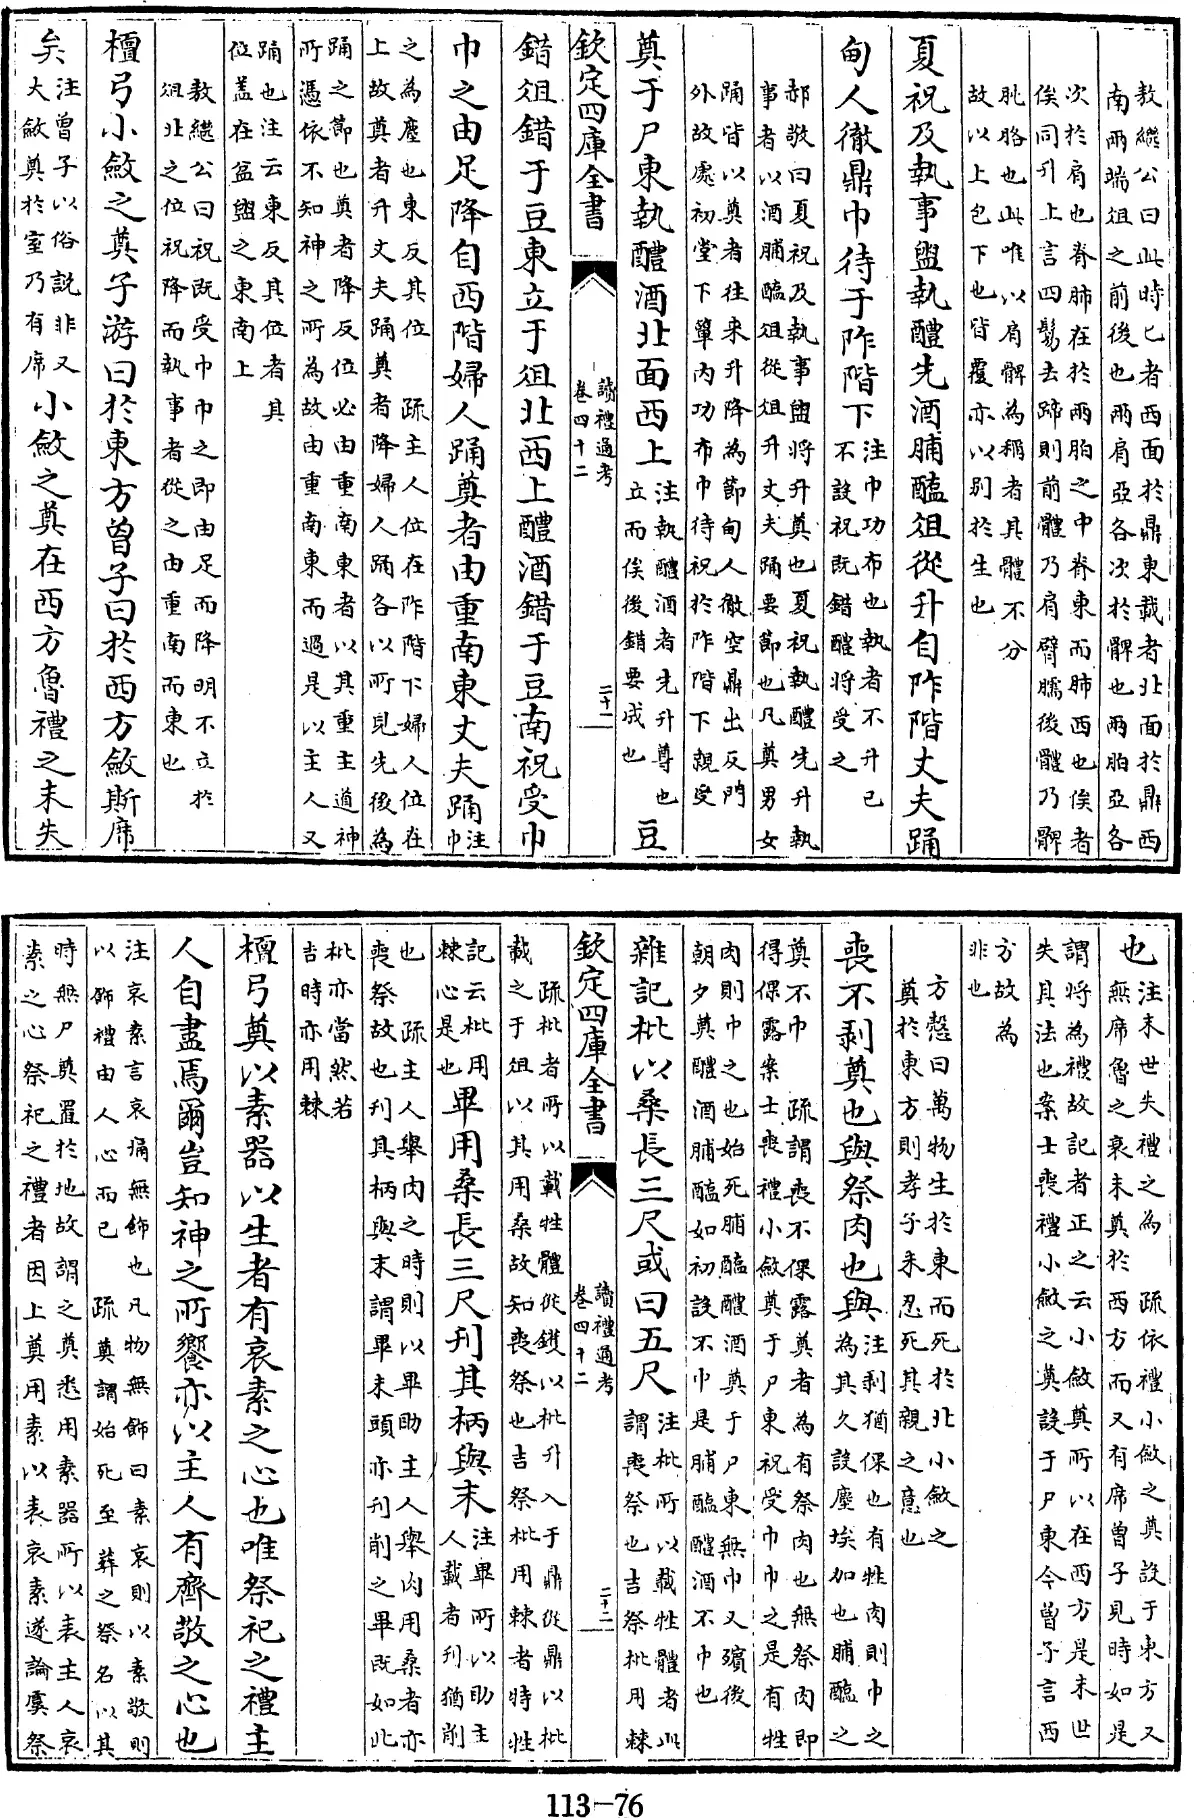 敖繼公曰此時匕者西面於鼎東載者北面於鼎西
南兩端俎之前後也兩肩亞各次於髀也兩胉亞各
次於肩也脊肺在於兩胉之中脊東而肺西也俟者
俟同升上言四鬄去蹄則前體乃肩臂臑後體乃髀
肫胳也此唯以肩髀為稱者其體不分
故以上包下也皆覆亦以别於生也
夏祝及執事盥執醴先酒脯醢俎從升自阼階丈夫踊
甸人徹鼎巾待于阼階下
注巾功布也執者不升已
不設祝既錯醴將受之
郝敬曰夏祝及執事盥將升奠也夏祝執醴先升執
事者以酒脯醢俎從俎升丈夫踊要節也凡奠男女
踊皆以奠者往來升降為節甸人徹空鼎出反門
外故處初堂下簞内功布巾待祝於阼階下親受
奠于尸東執醴酒北面西上
注執醴酒者先升尊也
立而俟後錯要成也
豆
欽定四庫全書
讀禮通考
卷四十二
二十一
錯俎錯于豆東立于俎北西上醴酒錯于豆南祝受巾
巾之由足降自西階婦人踊奠者由重南東丈夫踊
注
巾
之為塵也東反其位　疏主人位在阼階下婦人位在
上故奠者升丈夫踊奠者降婦人踊各以所見先後為
踊之節也奠者降反位必由重南東者以其重主道神
所憑依不知神之所為故由重南東而過是以主人又
踊也注云東反其位者其
位蓋在盆盥之東南上
敖繼公曰祝既受巾巾之即由足而降明不立於
俎北之位祝降而執事者從之由重南而東也
檀弓小斂之奠子游曰於東方曾子曰於西方斂斯席
矣
注曾子以俗説非又
大斂奠於室乃有席
小斂之奠在西方魯禮之末失
也
注末世失禮之為　疏依禮小斂之奠設于東方又
無席魯之衰末奠於西方而又有席曾子見時如是
謂將為禮故記者正之云小斂奠所以在西方是末世
失其法也案士喪禮小斂之奠設于尸東今曾子言西
方故為
非也
方慤曰萬物生於東而死於北小斂之
奠於東方則孝子未忍死其親之意也
喪不剥奠也與祭肉也與
注剥猶倮也有牲肉則巾之
為其久設塵埃加也脯醢之
奠不巾　疏謂喪不倮露奠者為有祭肉也無祭肉即
得倮露案士喪禮小斂奠于尸東祝受巾巾之是有牲
肉則巾之也始死脯醢醴酒奠于尸東無巾又殯後
朝夕奠醴酒脯醢如初設不巾是脯醢醴酒不巾也
雜記枇以桑長三尺或曰五尺
注枇所以載牲體者此
謂喪祭也吉祭枇用棘
欽定四庫全書
讀禮通考
卷四十二
二十二
疏枇者所以載牲體從鑊以枇升入于鼎從鼎以枇
載之于俎以其用桑故知喪祭也吉祭枇用棘者特牲
記云枇用
棘心是也
畢用桑長三尺刊其柄與末
注畢所以助主
人載者刊猶削
也　疏主人舉肉之時則以畢助主人舉肉用桑者亦
喪祭故也刊其柄與末謂畢末頭亦刊削之畢既如此
枇亦當然若
吉時亦用棘
檀弓奠以素器以生者有哀素之心也唯祭祀之禮主
人自盡焉爾豈知神之所饗亦以主人有齊敬之心也
注哀素言哀痛無飾也凡物無飾曰素哀則以素敬則
以飾禮由人心而已　疏奠謂始死至葬之祭名以其
時無尸奠置於地故謂之奠悉用素器所以表主人哀
素之心祭祀之禮者因上奠用素以表哀素遂論虞祭
113-76